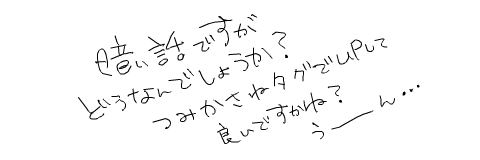 暗い話ですが
どうなんでしょうか?
つみかさねタグでUPして
良いですかね?
うーーん…